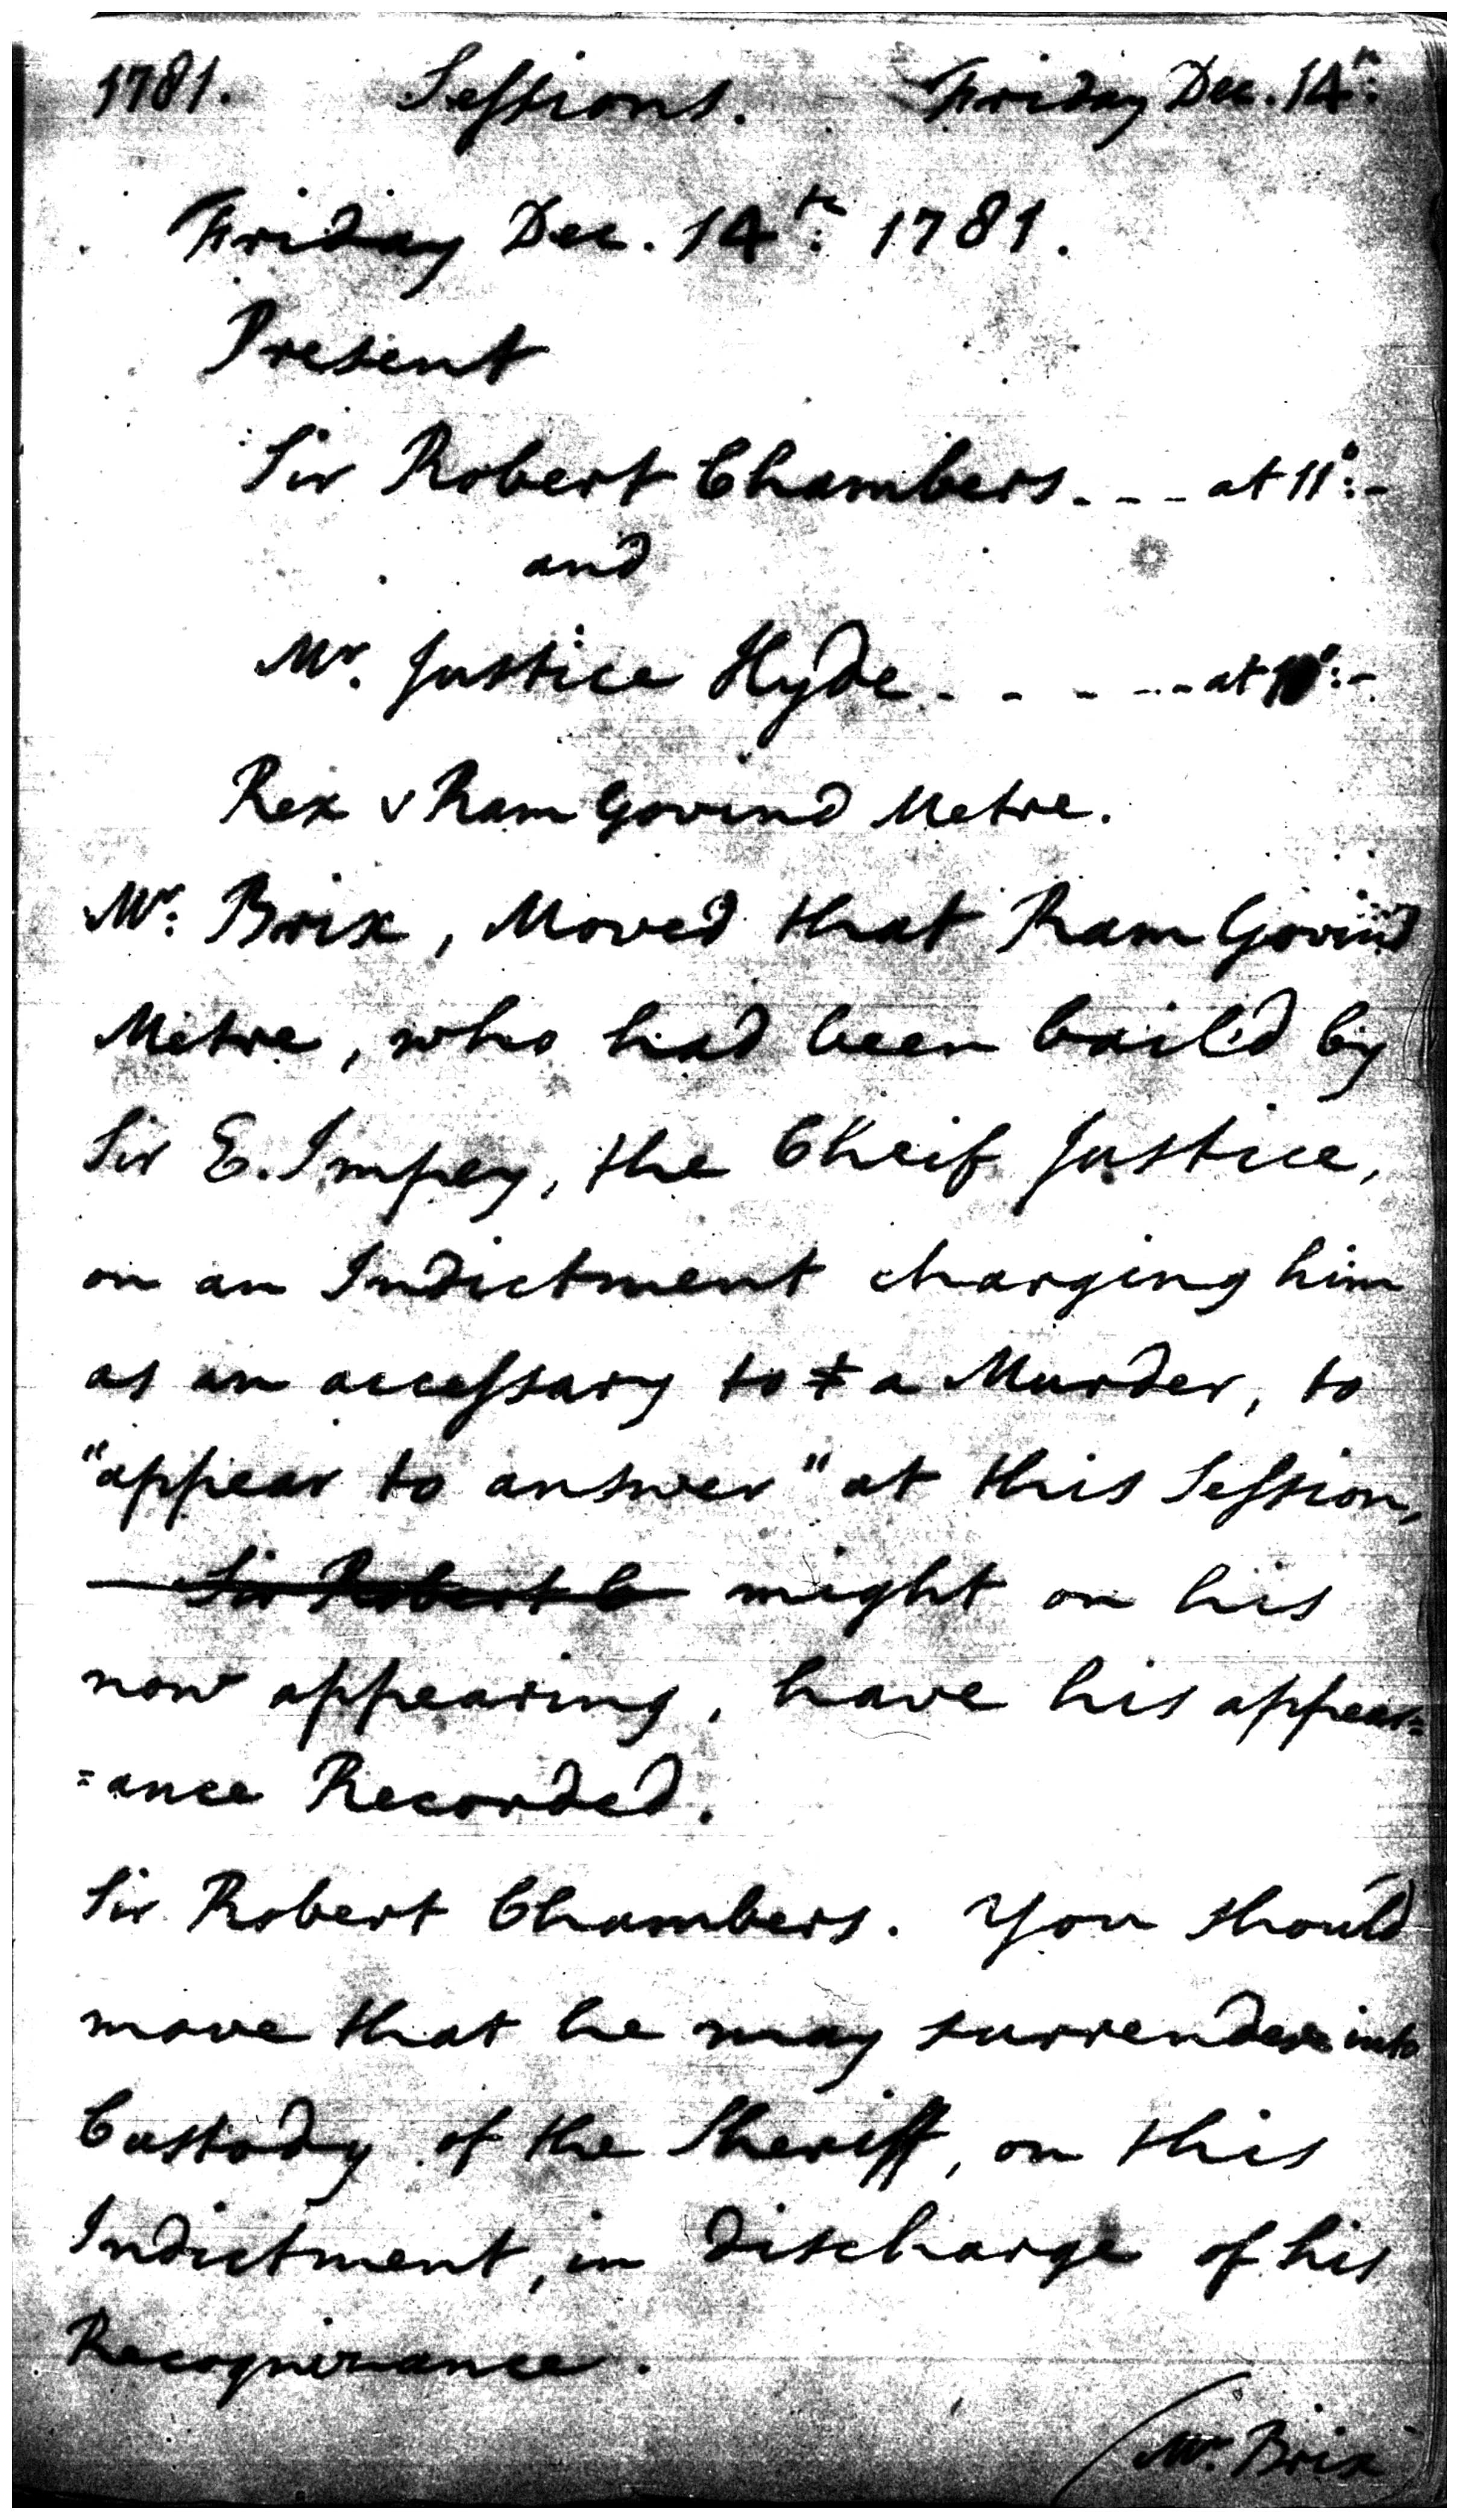 1781. Sessions. Friday Dec. 14th:
Friday Dec. 14th: 1781.
Present
Sir Robert Chambers - - - at 11°: -
and
Mr. Justice Hyde - - - - - at 10°: -
Rex v Ram Govind Metre.
Mr: Brix, Moved that Ram Govind
Metre, who had been bail'd by
Sir E. Impey, the Cheif Justice,
on an Indictment charging him
as an accessary to t a Murder, to
"appear to answer" at this Session,
Sir Robert C might on his
now appearing, have his appear=
=ance Recorded.
Sir Robert Chambers. You should
move that he may surrender into
Custody of the Sheriff, on this
Indictment, in discharge of his
Recognizance.
Mr. Brix